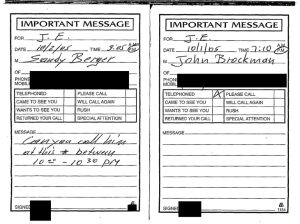 IMPORTANT MESSAGE
FOR J.E.
DATE 10/2/05 TIME 9:05
M Sandy Berger
OF
PHONE
MOBIL
TELEPHONED PLEASE CALL
CAME TO SEE YOU WILL CALL AGAIN
WANTS TO SEE YOU RUSH
RETURNED YOUR CALL SPECIAL ATTENTION
MESSAGE
Can you call him
at this # between
10 – 10 30 PM
SIGNED
IMPORTANT MESSAGE
FOR J.E.
DATE 10/1/05 TIME 7:10
M John Brockman
OF
PHONE
MOBIL
TELEPHONED X PLEASE CALL
CAME TO SEE YOU WILL CALL AGAIN
WANTS TO SEE YOU RUSH
RETURNED YOUR CALL SPECIAL ATTENTION
MESSAGE
SIGNED